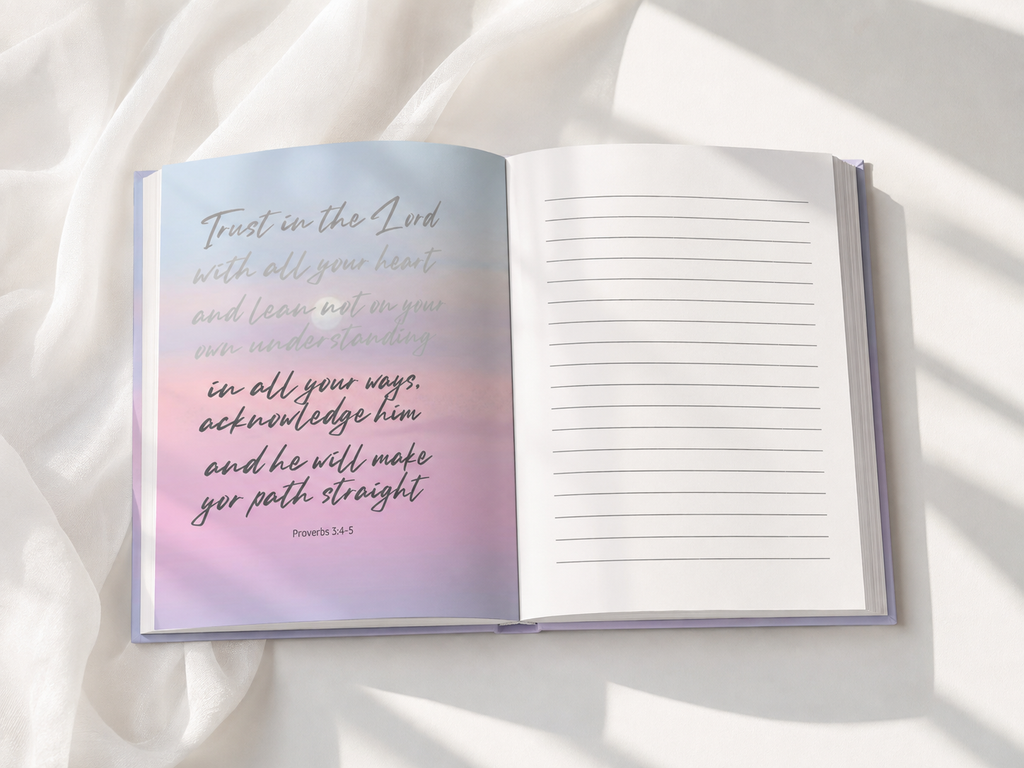 Trust in the Lord
with all your heart
and lean not on your
own understanding:
in all your ways,
acknowledge him
and he will make
yor path straight
Proverbs 3:4-5